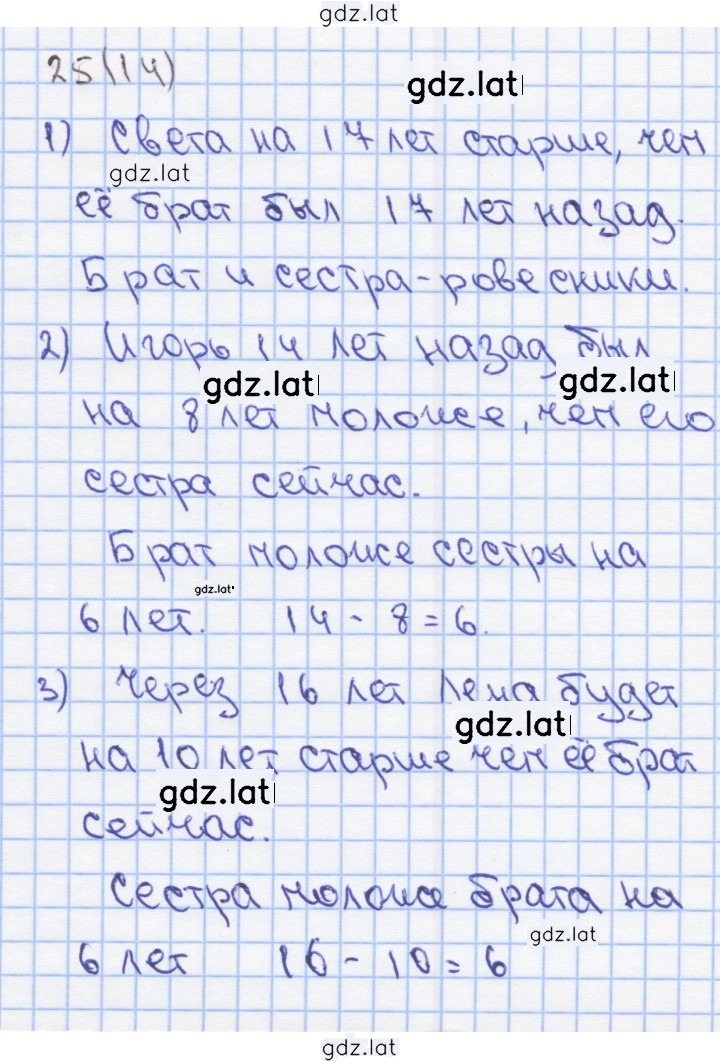 gdz.lat
25(14)
gdz.lat
1) Света на 17 лет старше, чем
gdz.lat
её брат был 17 лет назад.
Брат и сестра-ровесники.
2) Игорь 14 лет назад был
gdz.lat
gdz.lat
на 8 лет моложе, чем его
сестра сейчас.
Брат моложе сестры на
gdz.lat
6 лет. 14 - 8 = 6.
3) Через 16 лет Лена будет
gdz.lat
на 10 лет старше чем её брат
gdz.lat
сейчас.
Сестра моложе брата на
gdz.lat
6 лет 16 - 10 = 6
gdz.lat